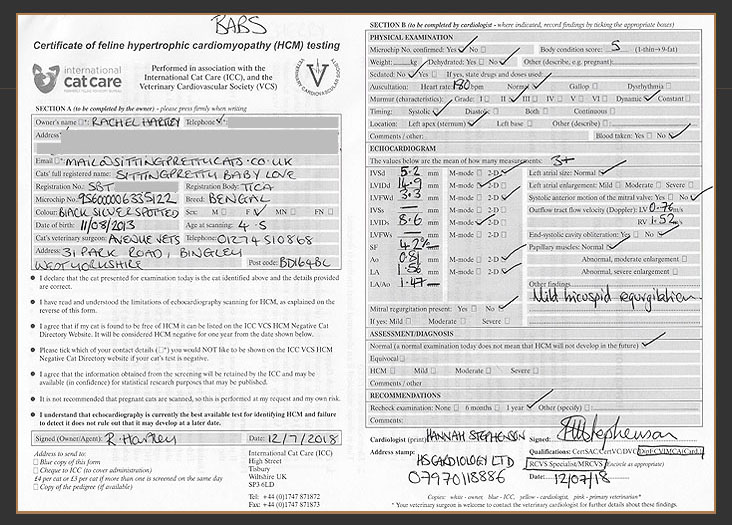 BABS
Certificate of feline hypertrophic cardiomyopathy (HCM) testing
international
cat care
Performed in association with the
International Cat Care (ICC), and the
Veterinary Cardiovascular Society (VCS)
SECTION A (to be completed by the owner) - please press firmly when writing
Owner's name □*: RACHEL HARTLEY Telephone ✓*:
Address*
Email □*: MAIL@SITTINGPRETTYCATS.CO.UK
Cats' full registered name: SITTINGPRETTY BABY LOVE
Registration No.: SBT Registration Body: TICA
Microchip No.: 956000006335122 Breed: BENGAL
Colour: BLACK SILVER SPOTTED Sex: M □ F ✓ MN □ FN □
Date of birth: 11/08/2013 Age at scanning: 4.5
Cat's veterinary surgeon: AVENUE VETS Telephone: 01274510868
Address: 31 PARK ROAD, BINGLEY
WEST YORKSHIRE Post code: BD164BL
• I declare that the cat presented for examination today is the cat identified above and the details provided
are correct.
• I have read and understood the limitations of echocardiography scanning for HCM, as explained on the
reverse of this form.
• I agree that if my cat is found to be free of HCM it can be listed on the ICC VCS HCM Negative Cat
Directory Website. It will be considered HCM negative for one year from the date shown below.
• Please tick which of your contact details (□*) you would NOT like to be shown on the ICC VCS HCM
Negative Cat Directory website if your cat's test is negative.
• I agree that the information obtained from the screening will be retained by the ICC and may be
available (in confidence) for statistical research purposes that may be published.
• It is not recommended that pregnant cats are scanned, so this is performed at my request and my own risk.
• I understand that echocardiography is currently the best available test for identifying HCM and failure
to detect it does not rule out that it may develop at a later date.
Signed (Owner/Agent): R Hartley Date: 12/7/2018
Address to send to:
□ Blue copy of this form
□ Cheque to ICC (to cover administration)
£4 per cat or £3 per cat if more than one is screened on the same day
□ Copy of the pedigree (if available)
International Cat Care (ICC)
High Street
Tisbury
Wiltshire UK
SP3 6LD
Tel: +44 (0)1747 871872
Fax: +44 (0)1747 871873
SECTION B (to be completed by cardiologist - where indicated, record findings by ticking the appropriate boxes)
PHYSICAL EXAMINATION
Microchip No. confirmed: Yes ✓ No □ Body condition score: 5 (1-thin→9-fat)
Weight: kg Dehydrated: Yes □ No ✓ Other (describe, e.g. pregnant):
Sedated: No ✓ Yes □ If yes, state drugs and doses used:
Auscultation: Heart rate: 180 bpm Normal ✓ Gallop □ Dysrhythmia □
Murmur (characteristics): Grade: I □ II ✓ III □ IV □ V □ VI □ Dynamic ✓ Constant □
Timing: Systolic ✓ Diastolic □ Both □ Continuous □
Location: Left apex (sternum) ✓ Left base □ Other (describe) □
Comments / other: Blood taken: Yes □ No ✓
ECHOCARDIOGRAM
The values below are the mean of how many measurements: 3+
IVSd 5.2 mm M-mode □ 2-D ✓ Left atrial size: Normal ✓
LVIDd 14.9 mm M-mode □ 2-D ✓ Left atrial enlargement: Mild □ Moderate □ Severe □
LVFWd 3.3 mm M-mode □ 2-D ✓ Systolic anterior motion of the mitral valve: Yes □ No ✓
IVSs mm M-mode □ 2-D □ Outflow tract flow velocity (Doppler): LV 0.76 m/s
LVIDs 8.6 mm M-mode □ 2-D ✓ RV 1.52 m/s
LVFWs mm M-mode □ 2-D □ End-systolic cavity obliteration: Yes □ No ✓
SF 42% Papillary muscles: Normal ✓
Ao 0.81 M-mode □ 2-D ✓ Abnormal, moderate enlargement □
LA 1.56 M-mode □ 2-D ✓ Abnormal, severe enlargement □
LA/Ao 1.47 Other findings
Mild tricuspid regurgitation
Mitral regurgitation present: Yes □ No ✓
If yes: Mild □ Moderate □ Severe □
ASSESSMENT/DIAGNOSIS
Normal (a normal examination today does not mean that HCM will not develop in the future) ✓
Equivocal □
HCM □ Mild □ Moderate □ Severe □
Comments / other
RECOMMENDATIONS
Recheck examination: None □ 6 months □ 1 year ✓ Other (specify) □
Comments:
Cardiologist (print) HANNAH STEPHENSON Signed: HMStephenson
Address stamp: HSCARDIOLOGY LTD Qualifications: CertSAC/CertVC/DVC/DipECVIMCA(Card.)
RCVS Specialist/MRCVS (Encircle as appropriate)
07970118886 Date: 12/07/18
Copies: white - owner, blue - ICC, yellow - cardiologist, pink - primary veterinarian*
*Your veterinary surgeon is welcome to contact the veterinary cardiologist for further details about these findings.